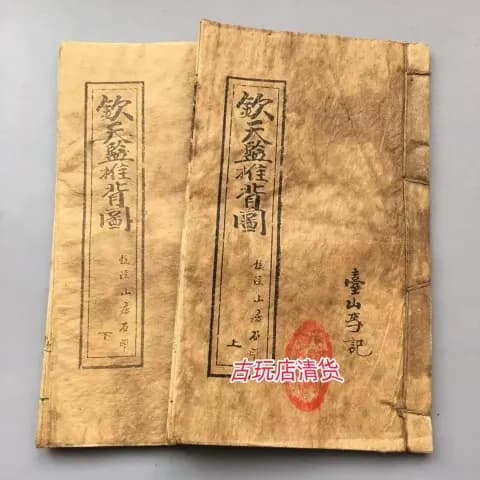 欽天監推背圖
山房石印
上
臺山李記
欽天監推背圖
山房石印
下
古玩店清货